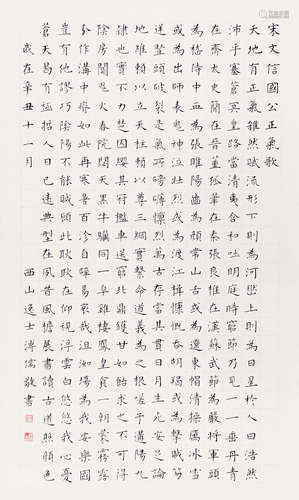 宋文信國公正氣歌
天地有正氣雜然賦流形下則為河嶽上則為日星於人曰浩然
沛乎塞蒼冥皇路當清夷含和吐明庭時窮節乃見一一垂丹青
在齊太史簡在晉董狐筆在秦張良椎在漢蘇武節為嚴將軍頭
為嵇侍中血為張睢陽齒為顏常山舌或為遼東帽清操厲冰雪
或為出師表鬼神泣壯烈或為渡江楫慷慨吞胡羯或為擊賊笏
逆豎頭破裂是氣所磅礡凜烈萬古存當其貫日月生死安足論
地維賴以立天柱賴以尊三綱實繫命道義為之根嗟予遘陽九
隸也實不力楚囚纓其冠檻車送窮北鼎鑊甘如飴求之不可得
陰房闃鬼火春院閟天黑牛驥同一皁雞棲鳳凰食一朝蒙霧露
分作溝中瘠如此再寒暑百沴自辟易哀哉沮洳場為我安樂國
豈有他謬巧陰陽不能賊顧此耿耿在仰視浮雲白悠悠我心憂
蒼天曷有極哲人日已遠典型在夙昔風簷展書讀古道照顏色
歲在辛丑十一月
西山逸士溥儒敬書